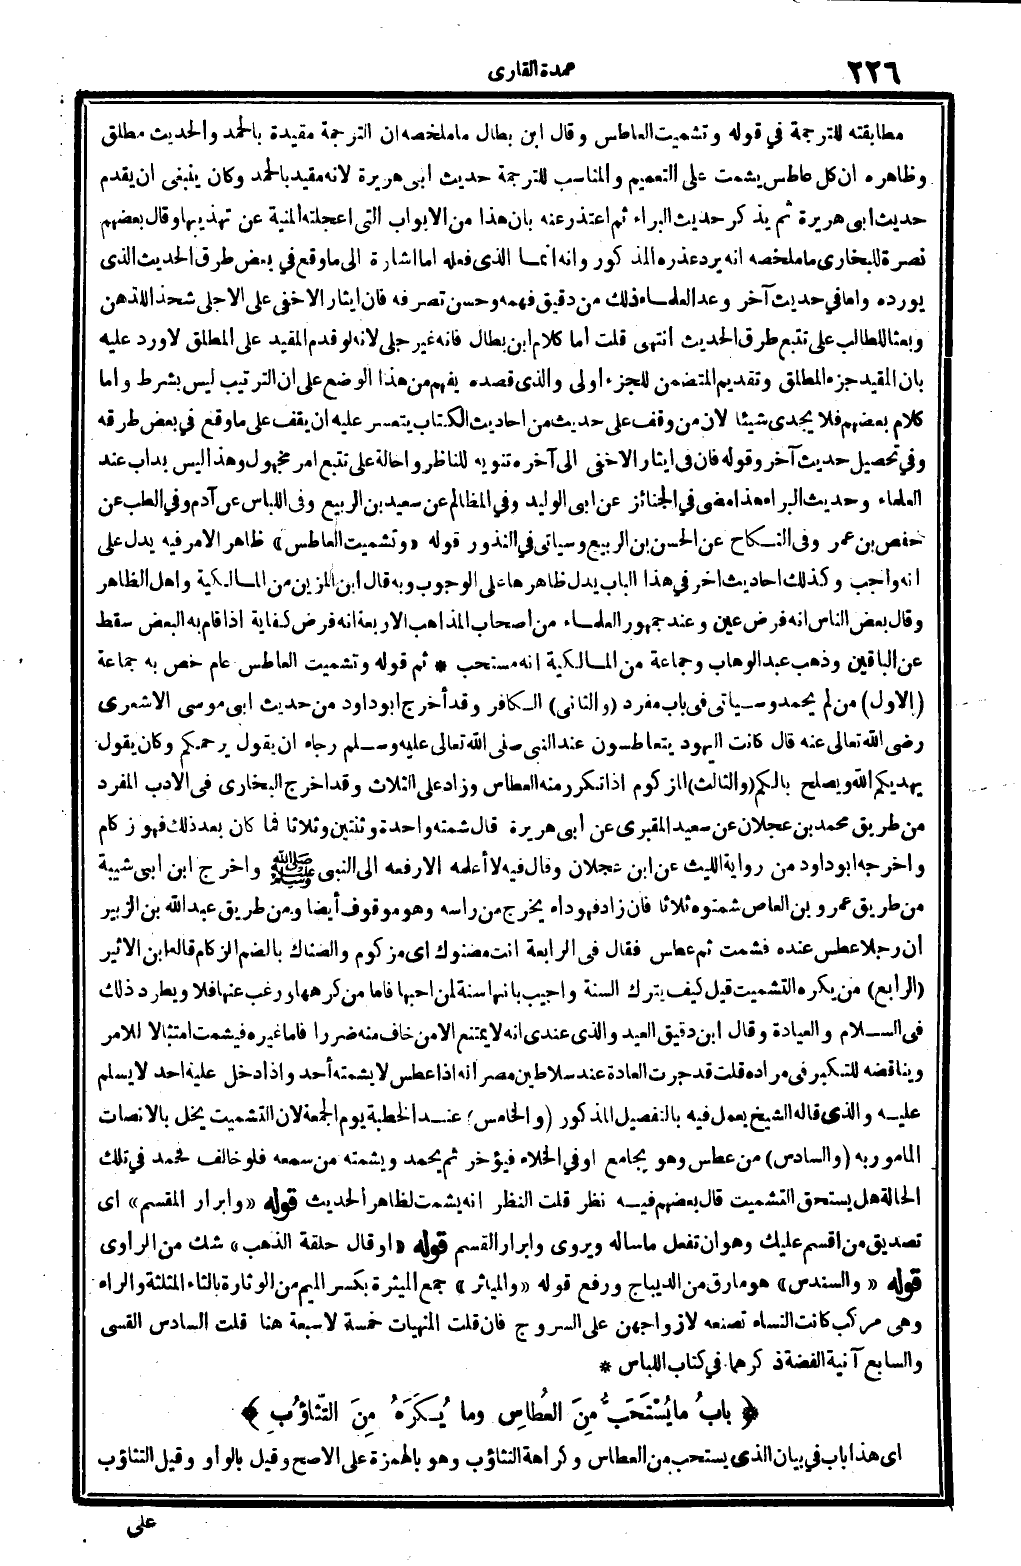 ٢٢٦
عمدة القارى
مطابقته للترجمة في قوله وتشميت العاطس وقال ابن بطال ماملخصه ان الترجمة مقيدة بالحمد والحديث مطلق
وظاهره ان كل عاطس يشمت على التعميم والمناسب للترجمة حديث ابى هريرة لانه مقيد بالحمد وكان ينبغى ان يقدم
حديث ابى هريرة ثم يذكر حديث البراء ثم اعتذر عنه بان هذا من الابواب التى اعجلته المنية عن تهذيبها وقال بعضهم
نصرة للبخارى ماملخصه انه يرد عذره المذكور وانه انما الذى فعله اما اشارة الى ماوقع في بعض طرق الحديث الذى
يورده واما في حديث آخر وعد العلماء ذلك من دقيق فهمه وحسن تصرفه فان ايثار الاخفى على الاجلى شحذا للذهن
وبعثا للطالب على تتبع طرق الحديث انتهى قلت أما كلام ابن بطال فانه غير جلى لانه لو قدم المقيد على المطلق لاورد عليه
بان المقيد جزء المطلق وتقديم المتضمن للجزء اولى والذى قصده يفهم من هذا الوضع على ان الترتيب ليس بشرط واما
كلام بعضهم فلا يجدى شيئا لان من وقف على حديث من احاديث الكتاب يتعسر عليه ان يقف على ماوقع في بعض طرقه
وفي تحصيل حديث آخر وقوله فان فى ايثار الاخفى الى آخره تنويه للناظر واحالة على تتبع امر مجهول وهذا ليس بداب عند
العلماء وحديث البراء هذا مضى في الجنائز عن ابى الوليد وفي المظالم عن سعيد بن الربيع وفى اللباس عن آدم وفي الطب عن
حفص بن عمر وفى النكاح عن الحسن بن الربيع وسياتى في النذور قوله «وتشميت العاطس» ظاهر الامر فيه يدل على
انه واجب وكذلك احاديث اخر في هذا الباب يدل ظاهرها على الوجوب وبه قال ابن المزين من المالكية واهل الظاهر
وقال بعض الناس انه فرض عين وعند جمهور العلماء من أصحاب المذاهب الاربعة انه فرض كفاية اذا قام به البعض سقط
عن الباقين وذهب عبد الوهاب وجماعة من المالكية انه مستحب * ثم قوله وتشميت العاطس عام خص به جماعة
(الاول) من لم يحمد وسياتى فى باب مفرد (والثانى) الكافر وقد أخرج ابو داود من حديث ابى موسى الاشعرى
رضى الله تعالى عنه قال كانت اليهود يتعاطسون عند النبى صلى الله تعالى عليه وسلم رجاء ان يقول يرحمكم وكان يقول
يهديكم الله ويصلح بالكم (والثالث) المزكوم اذا تكرر منه العطاس وزاد على الثلاث وقد اخرج البخارى فى الادب المفرد
من طريق محمد بن عجلان عن سعيد المقبرى عن أبى هريرة قال شمته واحدة وثنتين وثلاثا فما كان بعد ذلك فهو زكام
واخرجه ابو داود من رواية الليث عن ابن عجلان وقال فيه لا أعلمه الا رفعه الى النبى ﷺ واخرج ابن ابى شيبة
من طريق عمرو بن العاص شمتوه ثلاثا فان زاد فهو داء يخرج من راسه وهو موقوف أيضا ومن طريق عبد الله بن الزبير
أن رجلا عطس عنده فشمت ثم عطس فقال فى الرابعة انت مضنوك اى مزكوم والضناك بالضم الزكام قاله ابن الاثير
(الرابع) من يكره التشميت قيل كيف يترك السنة واجيب بانها سنة لمن احبها فاما من كرهها ورغب عنها فلا ويطرد ذلك
فى السلام والعيادة وقال ابن دقيق العيد والذى عندى انه لا يمتنع الا من خاف منه ضررا فاما غيره فيشمت امتثالا للامر
ويناقضه للتكبر فى مراده قلت قد جرت العادة عند سلاطين مصر انه اذا عطس لا يشمته أحد واذا دخل عليه احد لا يسلم
عليه والذى قاله الشيخ يعمل فيه بالتفصيل المذكور (والخامس) عند الخطبة يوم الجمعة لان التشميت يخل بالانصات
المامور به (والسادس) من عطس وهو يجامع او في الخلاء فيؤخر ثم يحمد ويشمته من سمعه فلو خالف فحمد في تلك
الحالة هل يستحق التشميت قال بعضهم فيه نظر قلت النظر انه يشمت لظاهر الحديث قوله «وابرار المقسم» اى
تصديق من اقسم عليك وهو ان تفعل ماساله ويروى وابرار القسم قوله «او قال حلقة الذهب» شك من الراوى
قوله «والسندس» هو مارق من الديباج ورفع قوله «والمياثر» جمع الميثرة بكسر الميم من الوثارة بالثاء المثلثة والراء
وهى مركب كانت النساء تصنعه لازواجهن على السروج فان قلت المنهيات خمسة لا سبعة هنا قلت السادس القسى
والسابع آنية الفضة ذكرهما في كتاب اللباس *
﴿ بابُ ما يُسْتَحَبُّ مِنَ العُطاسِ وما يُكرَهُ مِنَ التَّثاؤُبِ ﴾
اى هذا باب في بيان الذى يستحب من العطاس وكراهة التثاؤب وهو بالهمزة على الاصح وقيل بالواو وقيل التثاؤب
على